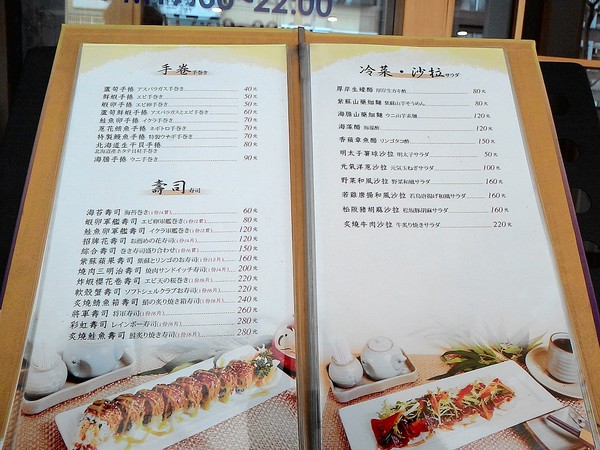 00~22:00
手卷 手巻き
蘆筍手捲 アスパラガス手巻き 40元
鮮蝦手捲 エビ手巻き 50元
蝦卵手捲 エビ卵手巻き 50元
蘆筍鮮蝦手捲 アスパラガスとエビ手巻き 60元
鮭魚卵手捲 イクラ手巻き 70元
蔥花鮪魚手捲 ネギトロ手巻き 70元
特製鰻魚手捲 特製ウナギ手巻き 70元
北海道生干貝手捲 80元
北海道産ホタテ貝柱手巻き
海膽手捲 ウニ手巻き 90元
壽司 寿司
海苔壽司 海苔巻き 60元
蝦卵軍艦壽司 エビ卵軍艦巻き 80元
鮭魚卵軍艦壽司 イクラ軍艦巻き 120元
招牌花壽司 お薦めの花寿司 120元
綜合壽司 巻き寿司盛り合わせ 150元
紫蘇蘋果壽司 紫蘇とリンゴのお寿司 160元
燒肉三明治壽司 焼肉サンドイッチ寿司 200元
炸蝦櫻花卷壽司 エビ天の桜巻き 220元
軟殼蟹壽司 ソフトシェルクラブお寿司 220元
炙燒鯖魚箱壽司 鯖の炙り焼き箱寿司 240元
將軍壽司 将軍寿司 260元
彩虹壽司 レインボー寿司 280元
炙燒鮭魚壽司 鮭炙り焼き寿司 280元
冷菜・沙拉 サラダ
厚岸生蠔醋 厚岸生カキ酢 80元
紫蘇山藥細麵 紫蘇山芋そうめん 80元
海膽山藥細麵 ウニ山芋素麺 120元
海藻醋 海藻酢 120元
香蘋章魚醋 リンゴタコ酢 150元
明太子薯球沙拉 明太子サラダ 50元
元氣洋蔥沙拉 元気玉ねぎサラダ 100元
野菜和風沙拉 野菜和風サラダ 160元
若雞唐揚和風沙拉 若鳥唐揚げ和風サラダ 160元
松阪豬胡麻沙拉 松坂豚胡麻サラダ 160元
炙燒牛肉沙拉 牛炙り焼きサラダ 220元